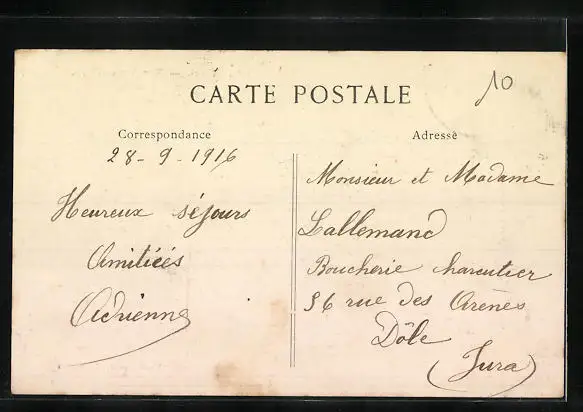 10
CARTE POSTALE
Correspondance
28-9-1916
Heureux séjours
Amitiéés
Adrienne
Adresse
Monsieur et Madame
Lallemand
Boucherie charcutier
56 rue des Arènes
Dôle
(Jura)